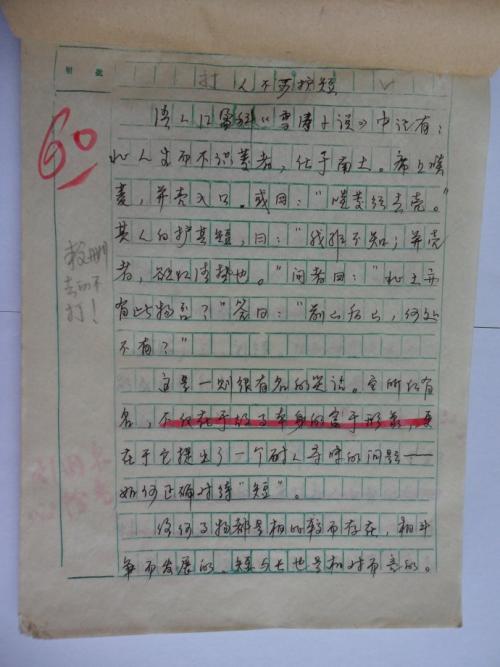 批
人不要护短
60
江盈科《雪涛小说》中记有：
北人生而不识菱者，仕于南土。席上啖
菱，并壳入口。或曰："啖菱须去壳。"
其人自护其短，曰："我非不知；并壳
者，欲以清热也。"问者曰："北土亦
有此物否？"答曰："前山后山，何处
不有？"
这是一则很有名的笑话。它所以有
名，不仅在于故事本身的富于形象，更
在于它提出了一个耐人寻味的问题——
如何正确对待"短"。
任何事物都是相比较而存在，相斗
争而发展的。短与长也是相对而言的。
不
打！